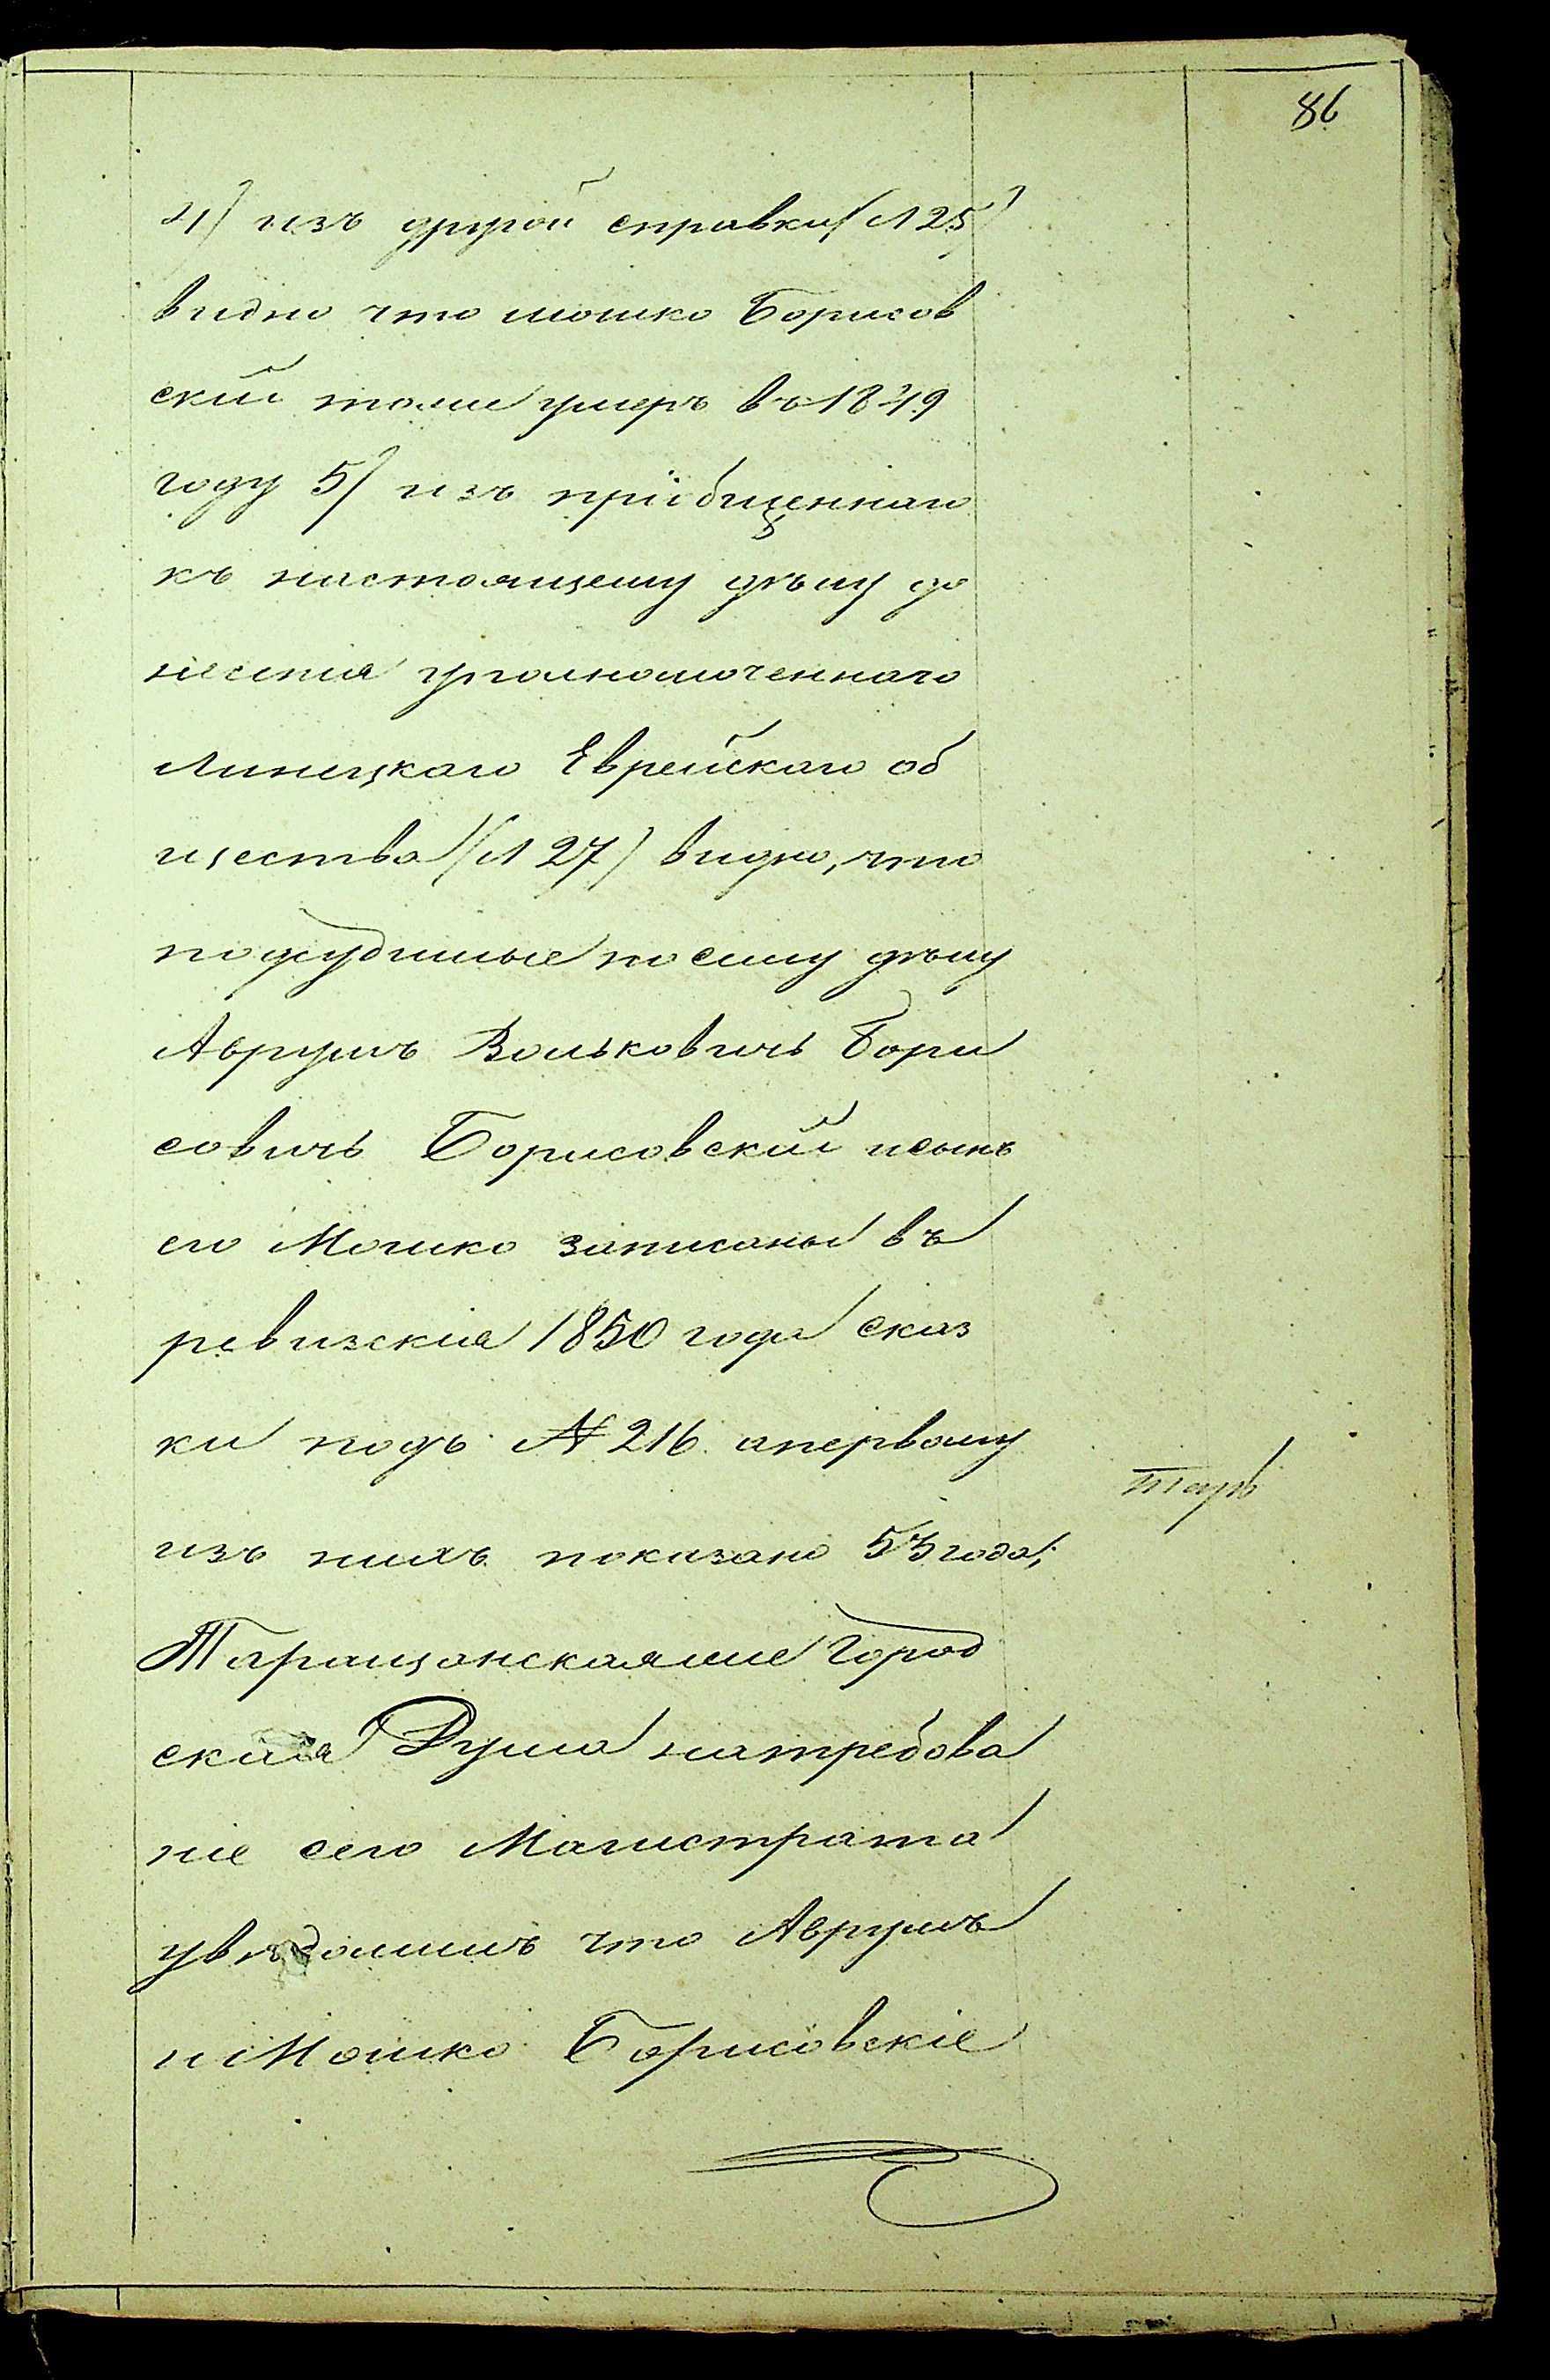 86
4) изъ другой справки (л 25)
видно что мошко Борисов
скій тоже умеръ въ 1849
году 5) изъ пріобщеннаго
къ настоящему дѣлу до
несенія уполномоченнаго
Линецкаго Еврейскаго об
щества (л 27) видно, что
подсудимые по сему дѣлу
Аврумъ Вольковичъ Бори
совичъ Борисовскій исынъ
его Мошко записаны въ
ревизскія 1850 года сказ
ки подъ № 216. апервому
изъ нихъ показано 53 года;
Таращанскаяже Город
ская Дума натребова
ніе сего Магистрата
увѣдомила что Аврумъ
и Мошко Борисовскіе